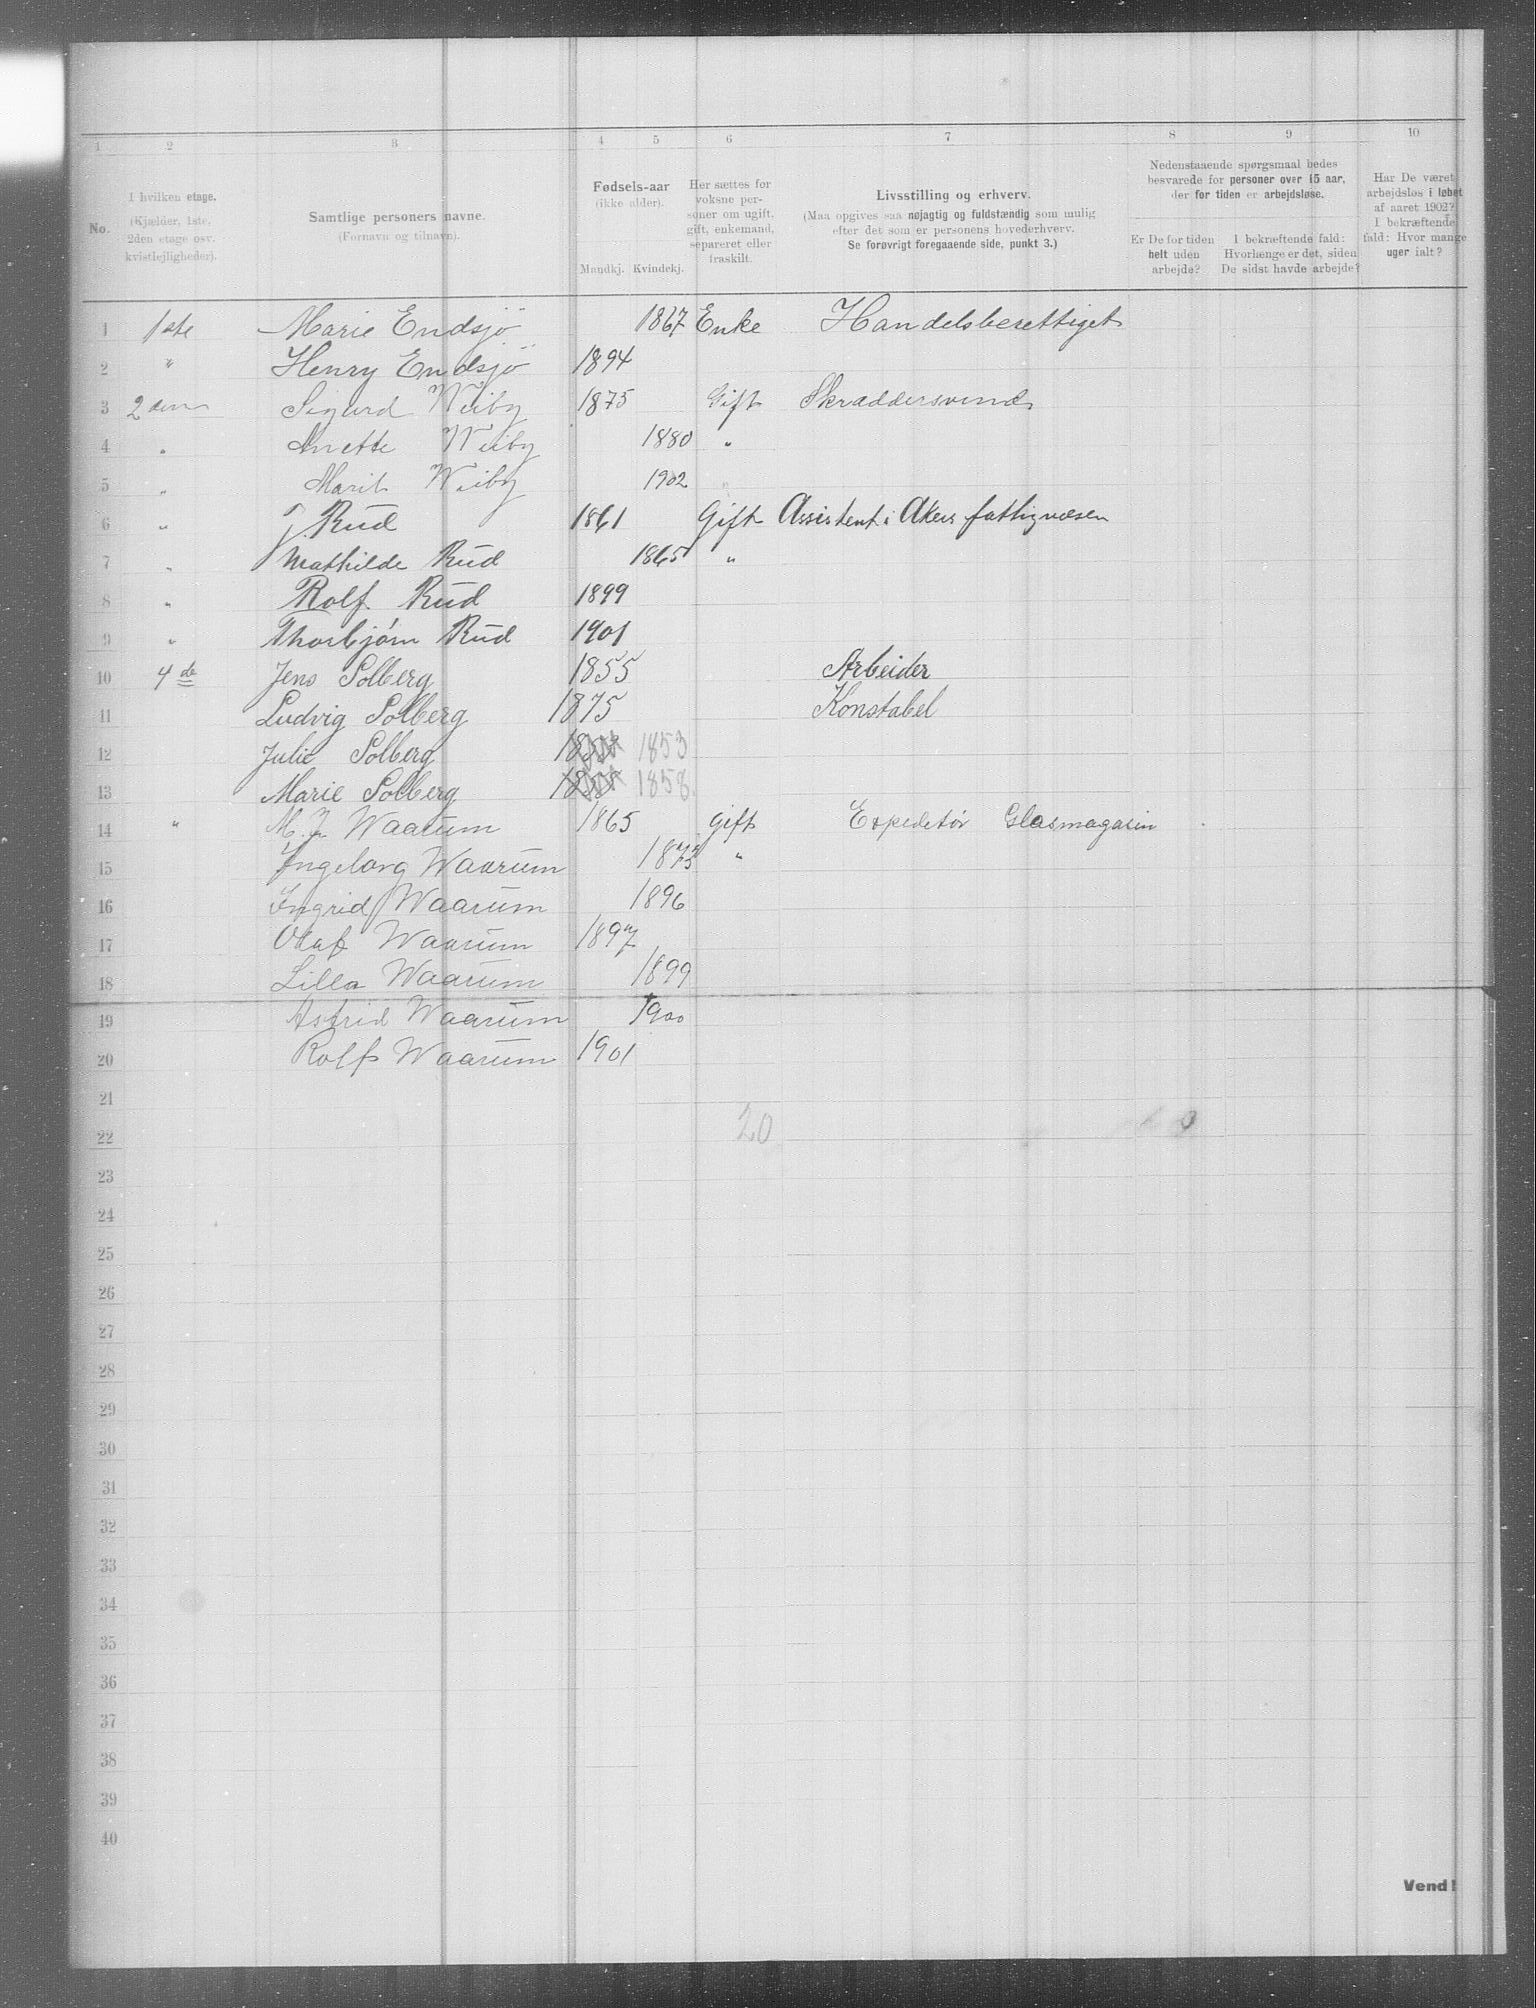 1 2 3 4 5 6 7 8 9 10
No.
I hvilken etage.
(Kjælder, 1ste.
2den etage osv.
kvistlejligheder).
Samtlige personers navne.
(Fornavn og tilnavn).
Fødsels-aar
(ikke alder).
Mandkj. Kvindekj.
Her sættes for
voksne per-
soner om ugift,
gift, enkemand,
separeret eller
fraskilt.
Livsstilling og erhverv.
(Maa opgives saa nøjagtig og fuldstændig som mulig
efter det som er personens hovederhverv.
Se forøvrigt foregaaende side, punkt 3.)
Nedenstaaende spørgsmaal bedes
besvarede for personer over 15 aar,
der for tiden er arbejdsløse.
Er De for tiden
helt uden
arbejde?
I bekræftende fald:
Hvorlænge er det, siden
De sidst havde arbejde?
Har De været
arbejdsløs i løbet
af aaret 1902?
I bekræftende
fald: Hvor mange
uger ialt?
1 1ste Marie Endsjö 1867 Enke Handelsberettiget
2 " Henry Endsjö 1894
3 2den Sigurd Wiiby 1875 Gift Skræddersvend
4 " Anette Wiiby 1880 "
5 " Marit Wiiby 1902 "
6 " J. Rud 1861 Gift Assistent i Akers fattigvæsen
7 " Mathilde Rud 1865 "
8 " Rolf Rud 1899
9 " Thorbjørn Rud 1901
10 4de Jens Solberg 1855 Arbeider
11 Ludvig Solberg 1875 Konstabel
12 Julie Solberg 1853
13 Marie Solberg 1858
14 " M. J. Waarum 1865 gift Expeditör Glasmagasin
15 Ingeborg Waarum 1875 "
16 Ingrid Waarum 1896
17 Olaf Waarum 1897
18 Lilla Waarum 1899
19 Astrid Waarum 1900
20 Rolf Waarum 1901
21
22 20
23
24
25
26
27
28
29
30
31
32
33
34
35
36
37
38
39
40
Vend!